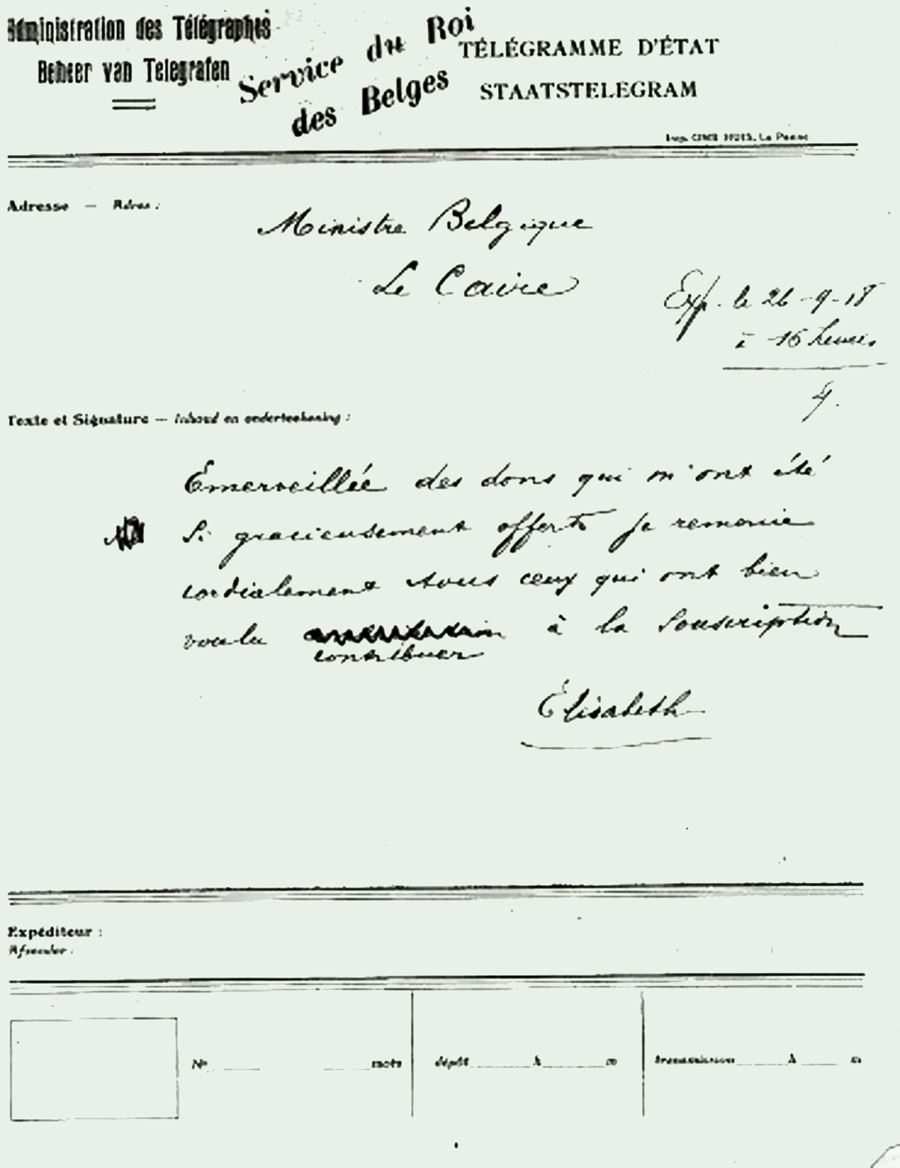 Administration des Télégraphes
Beheer van Telegrafen
Service du Roi
des Belges
TÉLÉGRAMME D'ÉTAT
STAATSTELEGRAM
Adresse — Adres :
Ministre Belgique
Le Caire
Exp. le 26-9-18
à 16 heures
Texte et Signature — Inhoud en onderteekening :
Émerveillée des dons qui m'ont été
si gracieusement offerts je remercie
cordialement tous ceux qui ont bien
voulu à la souscription
contribuer
Élisabeth
Expéditeur :
Afzender :
No mots dépôt h m transmission h m